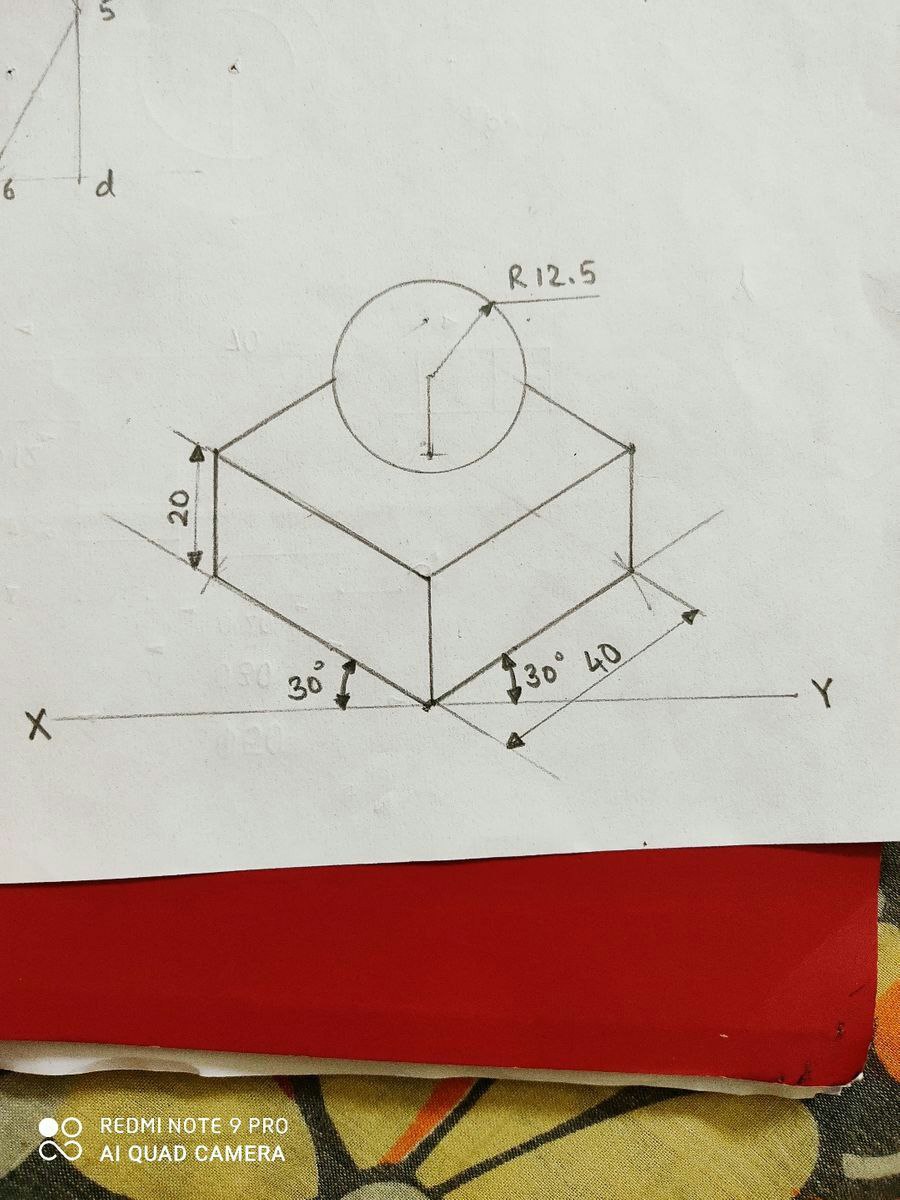 5
6
d
R12.5
20
30°
30°
40
X
Y
REDMI NOTE 9 PRO
AI QUAD CAMERA